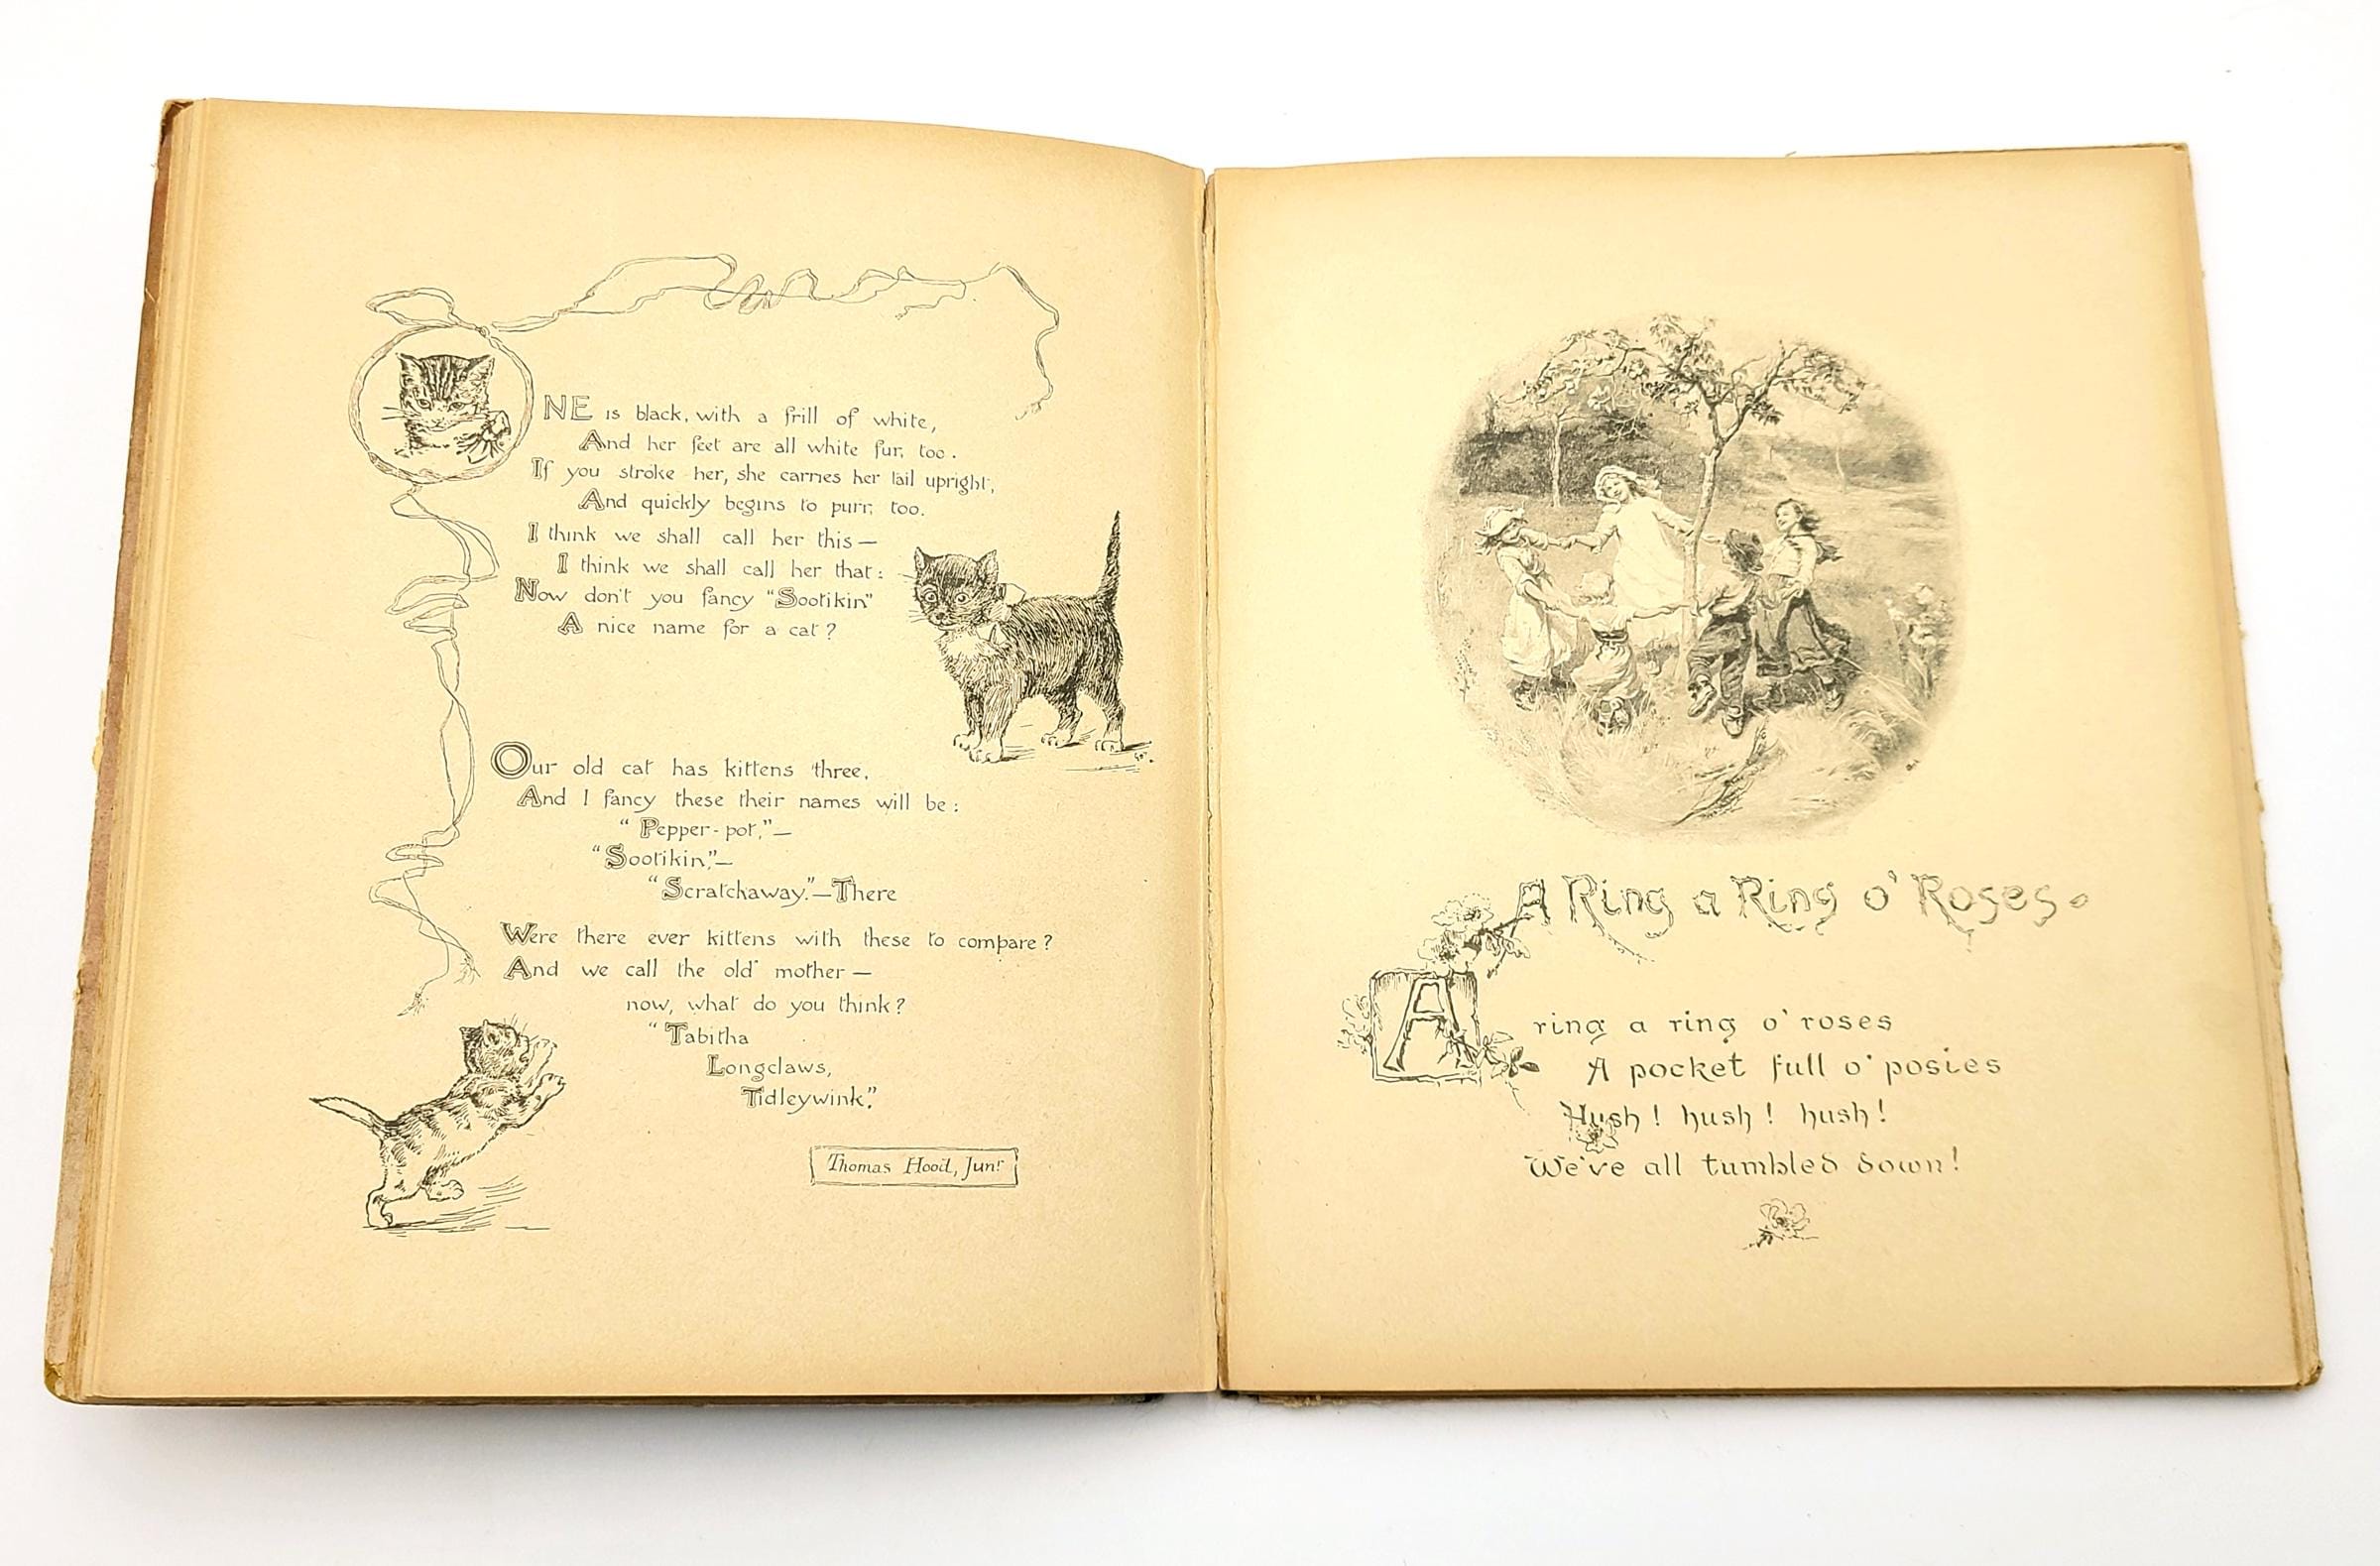 ONE is black, with a frill of white,
And her feet are all white fur, too.
If you stroke her, she carries her tail upright,
And quickly begins to purr, too.
I think we shall call her this —
I think we shall call her that :
Now don't you fancy "Sootikin"
A nice name for a cat ?
Our old cat has kittens three,
And I fancy these their names will be :
"Pepper-pot," —
"Sootikin," —
"Scratchaway." — There
Were there ever kittens with these to compare ?
And we call the old mother —
now, what do you think ?
"Tabitha
Longclaws,
Tidleywink."
Thomas Hood, Junr
A Ring a Ring o' Roses.
A ring a ring o' roses
A pocket full o' posies
Hush ! hush ! hush !
We've all tumbled down !